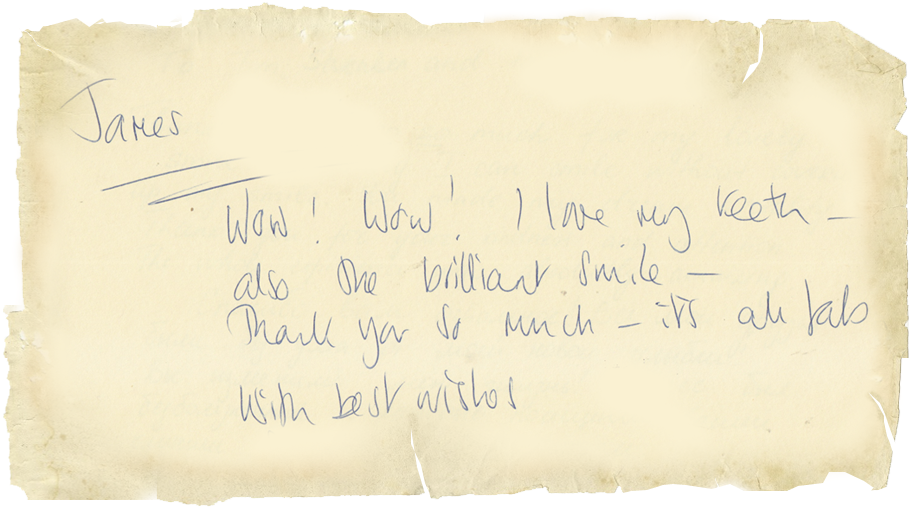 James
Wow! Wow! I love my teeth –
also the brilliant smile –
Thank you so much – it's all fab
With best wishes